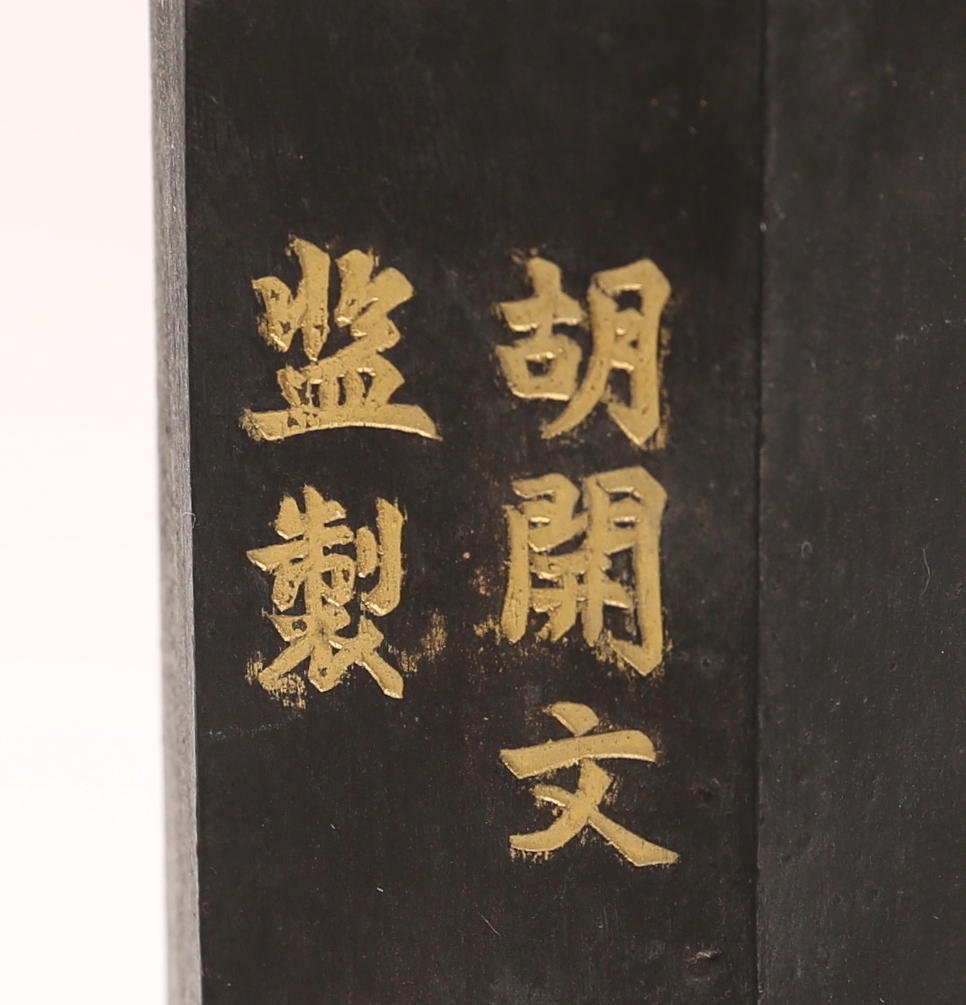 胡開文
監製